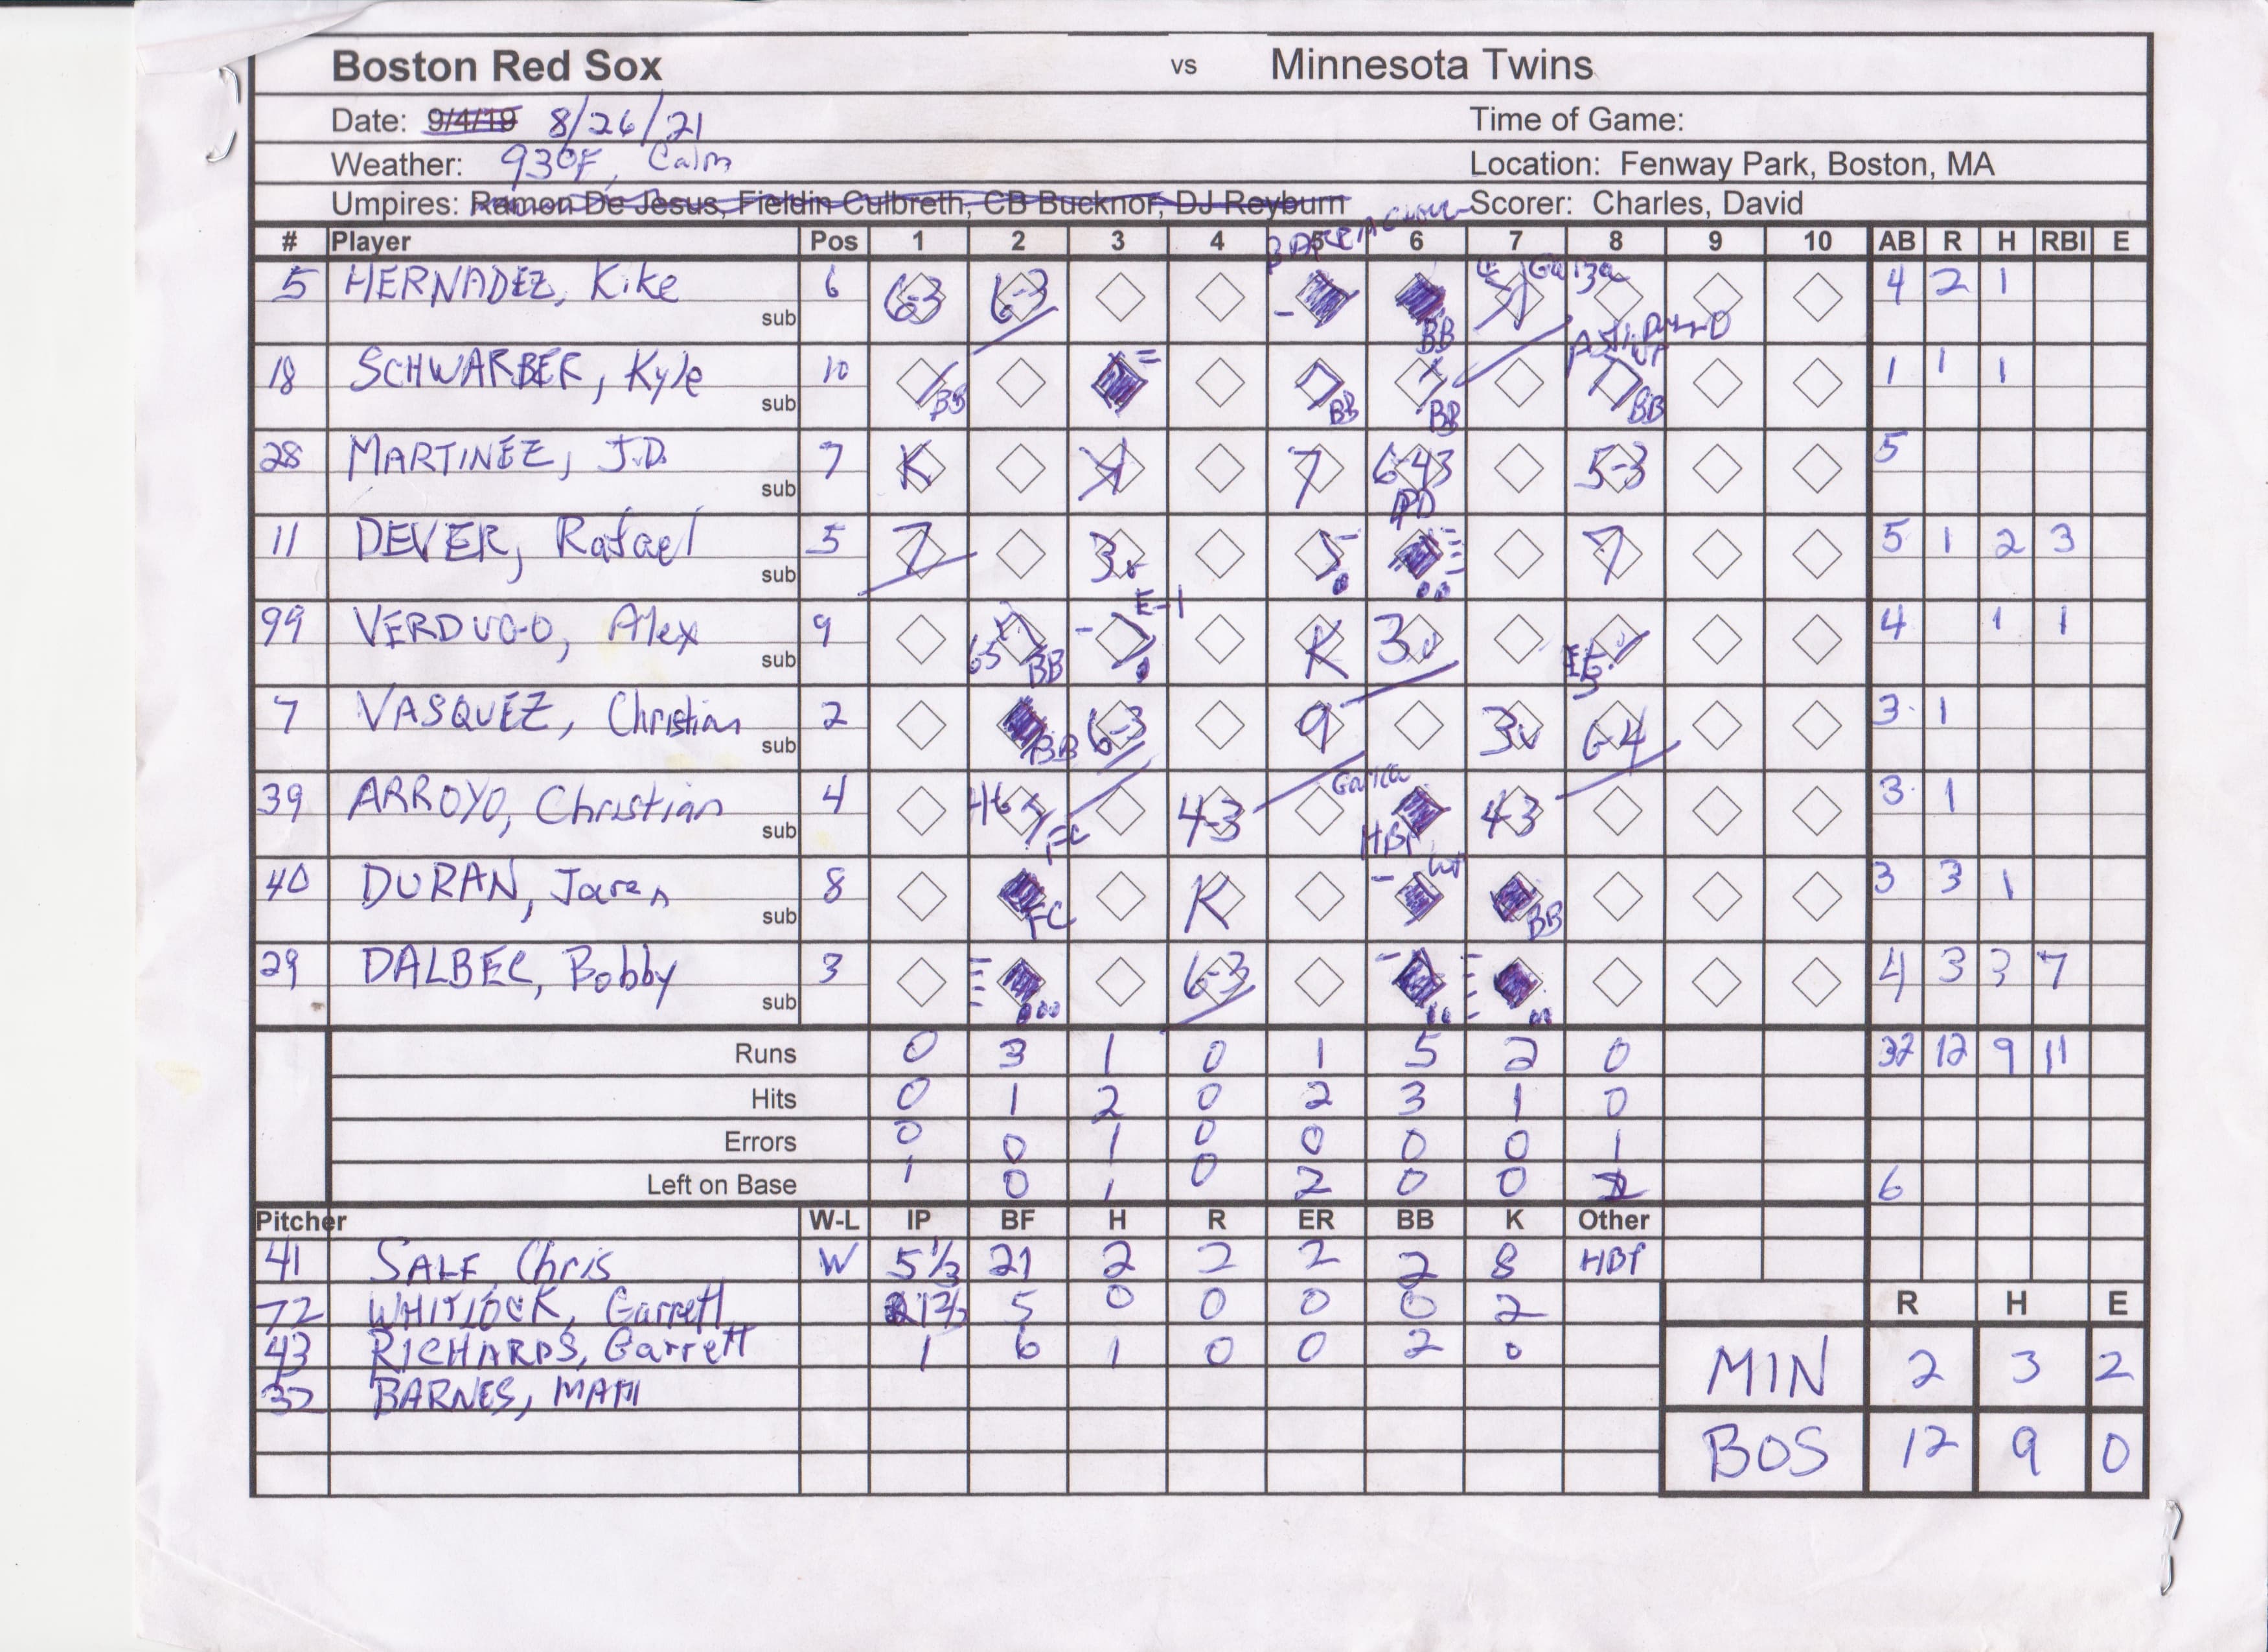 Boston Red Sox vs Minnesota Twins
Date: 9/4/19 8/26/21 Time of Game:
Weather: 93°F, Calm Location: Fenway Park, Boston, MA
Umpires: Ramon De Jesus, Fieldin Culbreth, CB Bucknor, DJ Reyburn Scorer: Charles, David
# Player Pos 1 2 3 4 5 6 7 8 9 10 AB R H RBI E
Garza
5 HERNADEZ, Kike 6 6-3 6-3 - BB 4 2 1
sub
18 SCHWARBER, Kyle 10 BB = BB BB BB 1 1 1
sub
28 MARTINEZ, J.D. 7 K K 7 6-43 5-3 5
sub
DP
11 DEVER, Rafael 5 7 3 5 7 5 1 2 3
sub
E-1
99 VERDUGO, Alex 9 65 BB - K 3 E5 4 1 1
sub
7 VASQUEZ, Christian 2 BB 6-3 9 3 6-4 3 1
sub
39 ARROYO, Christian 4 46 FC 4-3 HBP 43 3 1
sub
40 DURAN, Jaren 8 FC K - BB 3 3 1
sub
29 DALBEC, Bobby 3 6-3 4 3 3 7
sub
Runs 0 3 1 0 1 5 2 0 32 12 9 11
Hits 0 1 2 0 2 3 1 0
Errors 0 0 1 0 0 0 0 1
Left on Base 1 0 1 0 2 0 0 6
Pitcher W-L IP BF H R ER BB K Other
41 SALE, Chris W 5 1/3 21 2 2 2 2 8 HBP
72 WHITLOCK, Garrett 1 2/3 5 0 0 0 0 2
43 RICHARDS, Garrett 1 6 1 0 0 2 0
32 BARNES, MATT
R H E
MIN 2 3 2
BOS 12 9 0